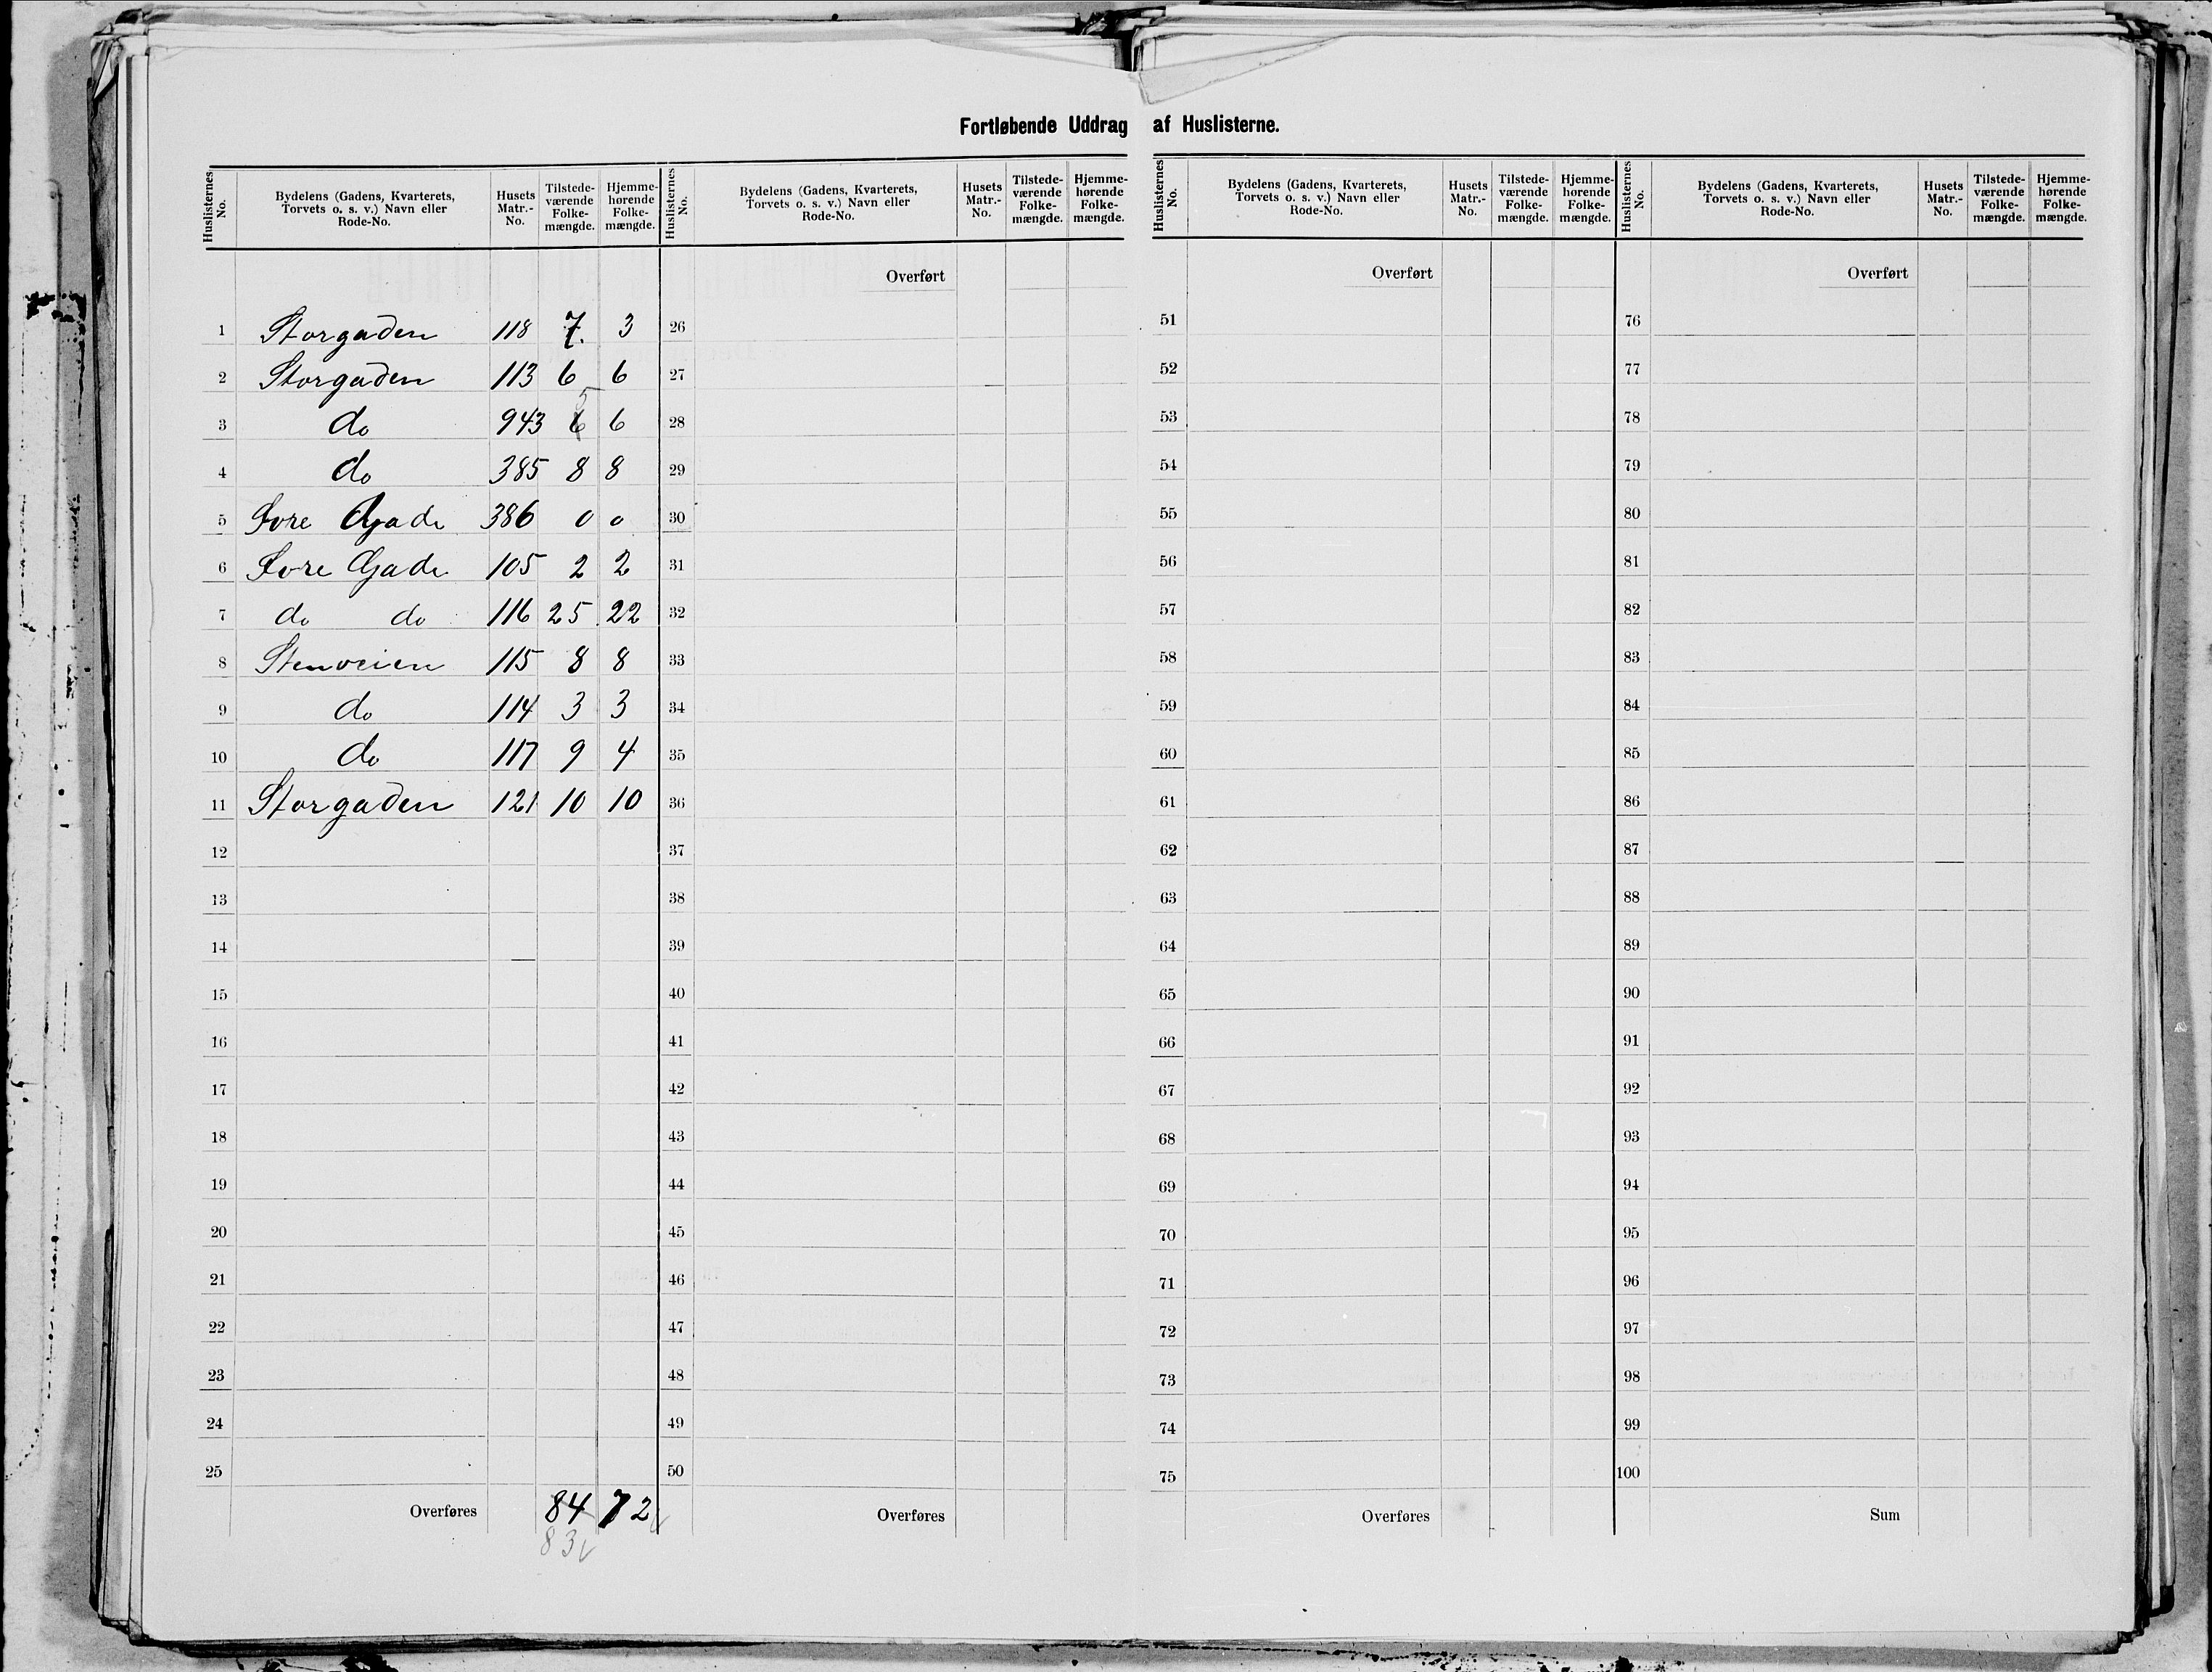 Fortløbende Uddrag af Huslisterne.
Huslisternes No. | Bydelens (Gadens, Kvarterets, Torvets o. s. v.) Navn eller Rode-No. | Husets Matr.-No. | Tilstede-værende Folke-mængde. | Hjemme-hørende Folke-mængde.
1 Storgaden 118 7. 3
2 Storgaden 113 6 6
3 do 943 6 5 6
4 do 385 8 8
5 Øvre Gade 386 0 0
6 Øvre Gade 105 2 2
7 do do 116 25 22
8 Stenveien 115 8 8
9 do 114 3 3
10 do 117 9 4
11 Storgaden 121 10 10
12
13
14
15
16
17
18
19
20
21
22
23
24
25
Overføres 84 72
83
Huslisternes No. | Bydelens (Gadens, Kvarterets, Torvets o. s. v.) Navn eller Rode-No. | Husets Matr.-No. | Tilstede-værende Folke-mængde. | Hjemme-hørende Folke-mængde.
Overført
26
27
28
29
30
31
32
33
34
35
36
37
38
39
40
41
42
43
44
45
46
47
48
49
50
Overføres
Huslisternes No. | Bydelens (Gadens, Kvarterets, Torvets o. s. v.) Navn eller Rode-No. | Husets Matr.-No. | Tilstede-værende Folke-mængde. | Hjemme-hørende Folke-mængde.
Overført
51
52
53
54
55
56
57
58
59
60
61
62
63
64
65
66
67
68
69
70
71
72
73
74
75
Overføres
Huslisternes No. | Bydelens (Gadens, Kvarterets, Torvets o. s. v.) Navn eller Rode-No. | Husets Matr.-No. | Tilstede-værende Folke-mængde. | Hjemme-hørende Folke-mængde.
Overført
76
77
78
79
80
81
82
83
84
85
86
87
88
89
90
91
92
93
94
95
96
97
98
99
100
Sum